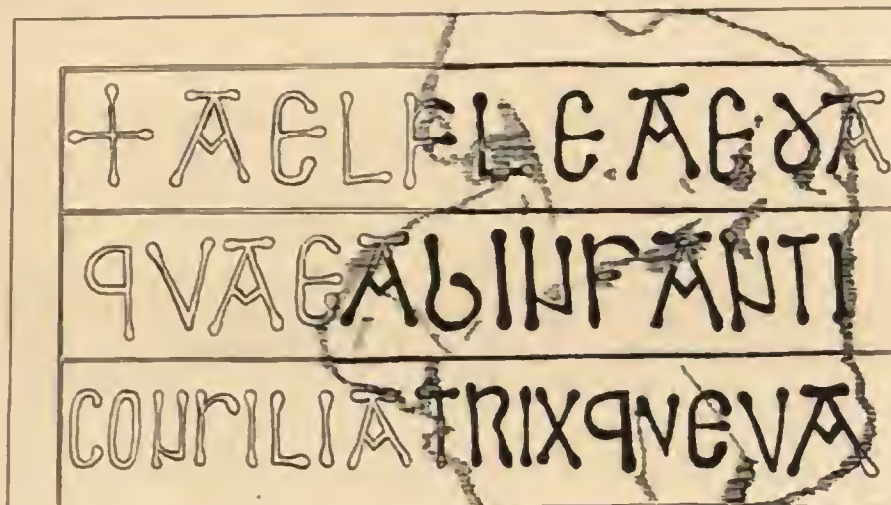 + AELFLE.AEDA
QVAEABINFANTI
CONSILIATRIXQVEVA